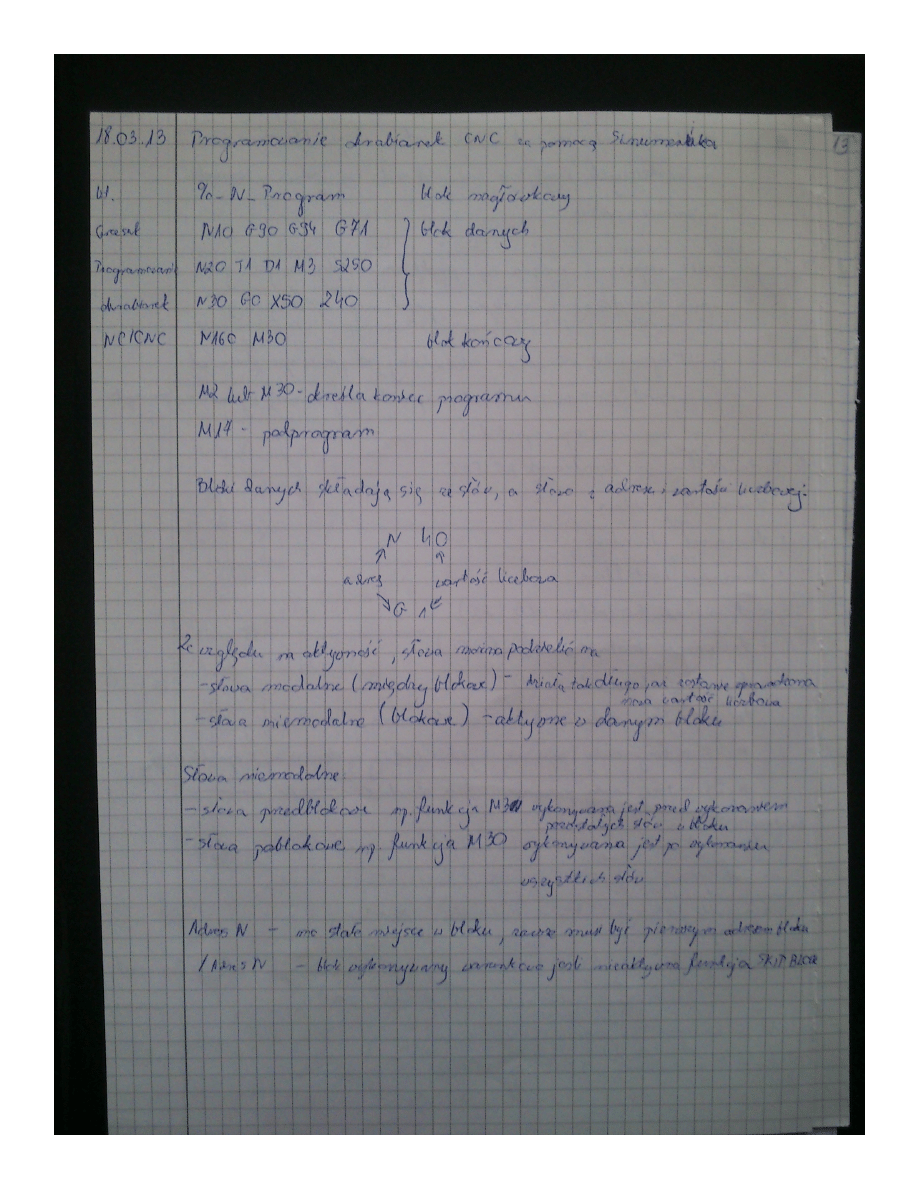 18.03.13 Programowanie obrabiarek CNC za pomocą Sinumerika
13
W. %_N_Program blok nagłówkowy
N10 G90 G94 G71 blok danych
Programowanie N20 T1 D1 M3 S250
obrabiarek N30 G0 X50 Z40
NC/CNC N160 M30 blok kończący
M2 lub M30 - określa koniec programu
M17 - podprogram
Bloki danych składają się ze słów, a słowo z adresu i wartości liczbowej.
N 40
adres wartość liczbowa
G 1
Ze względu na aktywność, słowa można podzielić na
- słowa modalne (między blokowe) - działa tak długo, aż zostanie wprowadzona
nowa wartość liczbowa
- słowa niemodalne (blokowe) - aktywne w danym bloku
Słowa niemodalne
- słowa przedblokowe np. funkcja M3 wykonywana jest przed wykonaniem
pozostałych słów w bloku
- słowa poblokowe np. funkcja M30 wykonywana jest po wykonaniu
wszystkich słów
Adres N - ma stałe miejsce w bloku, zawsze musi być pierwszym adresem bloku
/Adres N - blok wykonywany warunkowo jeśli nieaktywna funkcja SKIP BLOCK